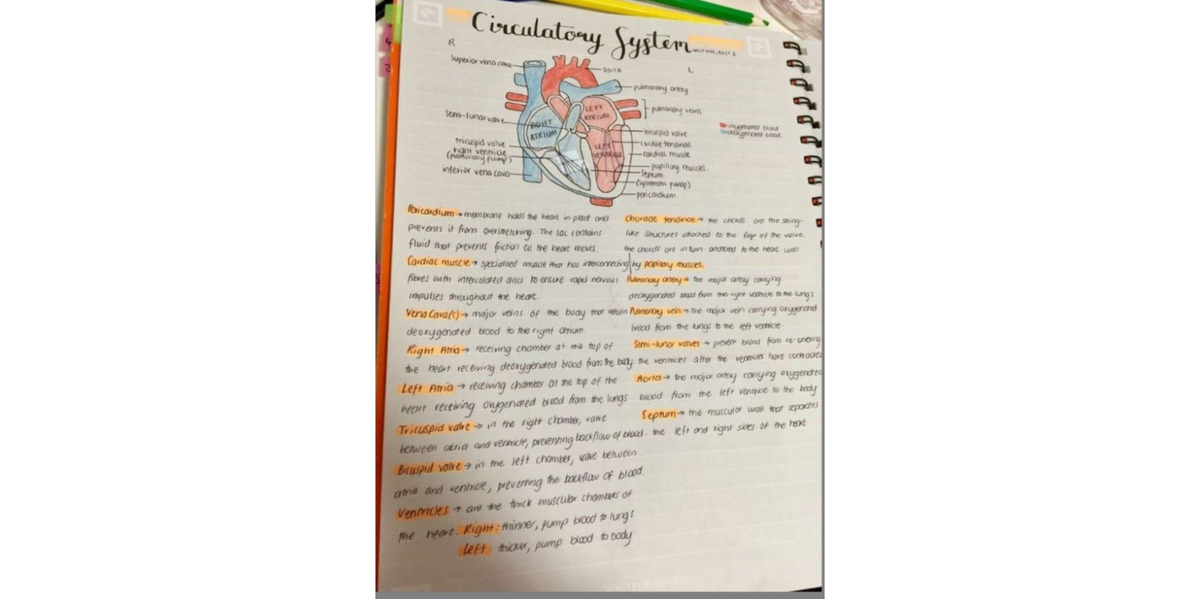 Circulatory System
R
L
Superior vena cava
aorta
pulmonary artery
pulmonary veins
semi-lunar valve
LEFT
ATRIUM
RIGHT
ATRIUM
oxygenated blood
deoxygenated blood
bicuspid valve
cordae tendinae
tricuspid valve
right ventricle
(pulmonary pump)
LEFT
VENTRICLE
cardiac muscle
papillary muscles
inferior vena cava
septum
(systemic pump)
pericardium
Pericardium → membrane holds the heart in place and
prevents it from overstretching. The sac contains
fluid that prevents friction as the heart moves.
Cardiac muscle → specialised muscle that has interconnecting
fibres with intercalated discs to ensure rapid nervous
impulses throughout the heart.
Vena Cava(s) → major veins of the body that return
deoxygenated blood to the right atrium.
Right Atria → receiving chamber at the top of
the heart receiving deoxygenated blood from the body
Left Atria → receiving chamber at the top of the
heart receiving oxygenated blood from the lungs
Tricuspid valve → in the right chamber, valve
between atria and ventricle, preventing backflow of blood.
Bicuspid valve → in the left chamber, valve between
atria and ventricle, preventing the backflow of blood.
Ventricles → are the thick muscular chambers of
the heart. Right: thinner, pump blood to lungs
Left: thicker, pump blood to body
Chordae tendinae → the chords are the string-
like structures attached to the flap of the valve.
the chords are in turn anchored to the heart wall
by papillary muscles.
Pulmonary artery → the major artery carrying
deoxygenated blood from the right ventricle to the lungs
Pulmonary vein → the major vein carrying oxygenated
blood from the lungs to the left ventricle
Semi-lunar valves → prevent blood from re-entering
the ventricles after the ventricles have contracted
Aorta → the major artery carrying oxygenated
blood from the left ventricle to the body
Septum → the muscular wall that separates
the left and right sides of the heart